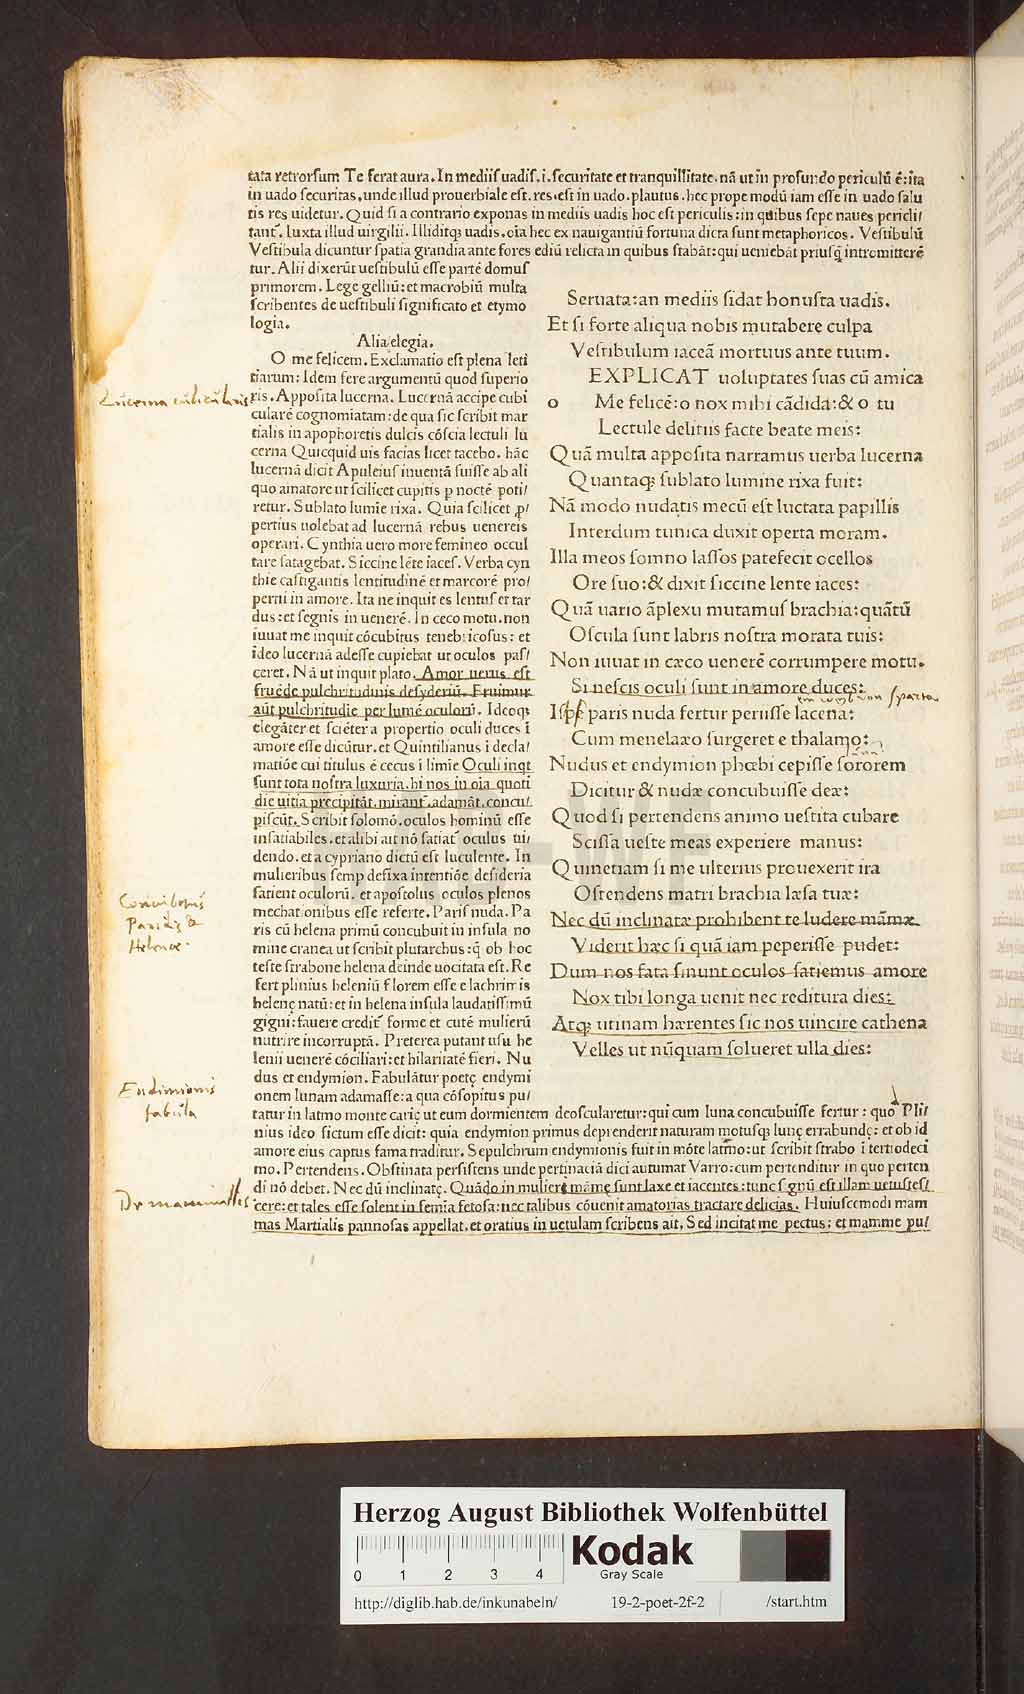 tata retrorsum Te ferat aura. In mediis uadis. i. securitate et tranquillitate. nã ut in profundo periculũ ẽ: ita
in uado securitas, unde illud prouerbiale est. res est in uado. plautus. hec prope modũ iam esse in uado salu
tis res uidetur. Quid si a contrario exponas in mediis uadis hoc est periculis: in quibus sepe naues pericli/
tant᷑. Iuxta illud uirgilii. Illiditqꝫ uadis. oĩa hec ex nauigantiũ fortuna dicta sunt metaphoricos. Vestibulũ
Vestibula dicuntur spatia grandia ante fores ediũ relicta in quibus stabãt: qui ueniebãt priusq̃ intromitterẽ
tur. Alii dixerũt uestibulũ esse partẽ domus
primorem. Lege gelliũ: et macrobiũ multa
scribentes de uestibuli significato et etymo
logia.
Alia elegia.
O me felicem. Exclamatio est plena leti
tiarum: Idem fere argumentũ quod superio
ris. Apposita lucerna. Lucernã accipe cubi
cularẽ cognomiatam: de qua sic scribit mar
tialis in apophoretis dulcis cõscia lectuli lu
cerna Quicquid uis facias licet tacebo. hãc
lucernã dicit Apuleius inuentã fuisse ab ali
quo amatore ut scilicet cupitis p noctẽ poti/
retur. Sublato lumĩe rixa. Quia scilicet ꝓ/
pertius uolebat ad lucernã rebus uenereis
operari. Cynthia uero more femineo occul
tare satagebat. Siccine lẽte iaces. Verba cyn
thie castigantis lentitudinẽ et marcorẽ pro/
perni in amore. Ita ne inquit es lentus et tar
dus: et segnis in uenerẽ. In ceco motu. non
iuuat me inquit cõcubitus tenebricosus: et
ideo lucernã adesse cupiebat ut oculos pas/
ceret. Nã ut inquit plato. Amor uerus est
fruẽde pulchritudinis desyderiũ. Fruimur
aũt pulchritudĩe per lumẽ oculorũ. Ideoqꝫ
elegãter et sciẽter a propertio oculi duces ĩ
amore esse dicũtur. et Quintilianus ĩ decla/
matiõe cui titulus ẽ cecus ĩ limĩe Oculi inqt
sunt tota nostra luxuria. hi nos in oĩa quoti
die uitia precipitãt. mirant᷑. adamãt. concu/
piscũt. Scribit solomõ. oculos hominũ esse
insatiabiles. et alibi ait nõ satiat᷑ oculus ui/
dendo. et a cypriano dictũ est luculente. In
mulieribus semp defixa intentiõe desideria
satient oculorũ. et apostolus oculos plenos
mechationibus esse referte. Paris nuda. Pa
ris cũ helena primũ concubuit in insula no
mine cranea ut scribit plutarchus: q̃ ob hoc
teste strabone helena deinde uocitata est. Re
fert plinius heleniũ florem esse e lachrimis
helenę natũ: et in helena insula laudatissimũ
gigni: fauere credit᷑ forme et cutẽ mulierũ
nutrire incorruptã. Preterea putant usu he
lenii uenerẽ cõciliari: et hilaritatẽ fieri. Nu
dus et endymion. Fabulãtur poetę endymi
onem lunam adamasse: a qua cõsopitus pu/
tatur in latmo monte carię ut eum dormientem deoscularetur: qui cum luna concubuisse fertur: quo Pli/
nius ideo fictum esse dicit: quia endymion primus deprenderit naturam motusqꝫ lunę errabundę: et ob id
amore eius captus fama traditur. Sepulchrum endymionis fuit in mõte latmo: ut scribit strabo ĩ tertiodeci
mo. Pertendens. Obstinata persistens unde pertinaciã dici autumat Varro: cum pertenditur in quo perten
di nõ debet. Nec dũ inclinatę. Quãdo in mulierẽ mãmę sunt laxe et iacentes: tunc signũ est illam uetustes/
cere: et tales esse solent in femĩa fetosa: nec talibus cõuenit amatorias tractare delicias. Huiuscemodi mam
mas Martialis pannosas appellat. et oratius in uetulam scribens ait. Sed incitat me pectus: et mamme pu/
Seruata: an mediis sidat honusta uadis.
Et si forte aliqua nobis mutabere culpa
Vestibulum iaceã mortuus ante tuum.
EXPLICAT uoluptates suas cũ amica
o Me felicẽ: o nox mihi cãdida: & o tu
Lectule delitiis facte beate meis:
Quã multa apposita narramus uerba lucerna
Quantaqꝫ sublato lumine rixa fuit:
Nã modo nudatis mecũ est luctata papillis
Interdum tunica duxit operta moram.
Illa meos somno lassos patefecit ocellos
Ore suo: & dixit siccine lente iaces:
Quã uario ãplexu mutamus brachia: quãtũ
Oscula sunt labris nostra morata tuis:
Non iuuat in cæco uenerẽ corrumpere motu.
Si nescis oculi sunt in amore duces:
Ipse paris nuda fertur periisse lacena:
Cum menelaxo surgeret e thalamo:
Nudus et endymion phœbi cepisse sororem
Dicitur & nudæ concubuisse deæ:
Quod si pertendens animo uestita cubare
Scissa ueste meas experiere manus:
Quinetiam si me ulterius prouexerit ira
Ostendens matri brachia læsa tuæ:
Nec dũ inclinatæ prohibent te ludere mãmæ
Viderit hæc si quã iam peperisse pudet:
Dum nos fata sinunt oculos satiemus amore
Nox tibi longa uenit nec reditura dies:
Atqꝫ utinam hærentes sic nos uincire cathena
Velles ut nũquam solueret ulla dies:
Lucerna cubicularis
Concubitus
Paridis &
Helenæ.
Endimionis
fabula
De mammillis
HAB-WF
Herzog August Bibliothek Wolfenbüttel
0 1 2 3 4
Kodak
Gray Scale
http://diglib.hab.de/inkunabeln/ 19-2-poet-2f-2 /start.htm